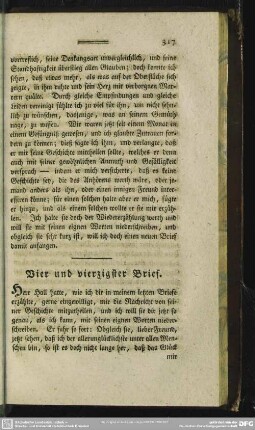 317
vortreflich, seine Denkungsart unvergleichlich, und seine
Standhaftigkeit überstieg allen Glauben; doch konnte ich
sehen, daß etwas mehr, als was auf der Oberfläche sich
zeigte, in ihm nahte und sein Herz mit verborgnen Mar-
tern quälte. Durch gleiche Empfindungen und gleiche
leiden vereinigt fühlte ich zu viel für ihn, um nicht sehn-
lich zu wünschen, dasjenige, was an seinem Gemüth
zu wissen. Wir waren jetzt seit einem Monat in
einem Gefängniß gewesen, und ich glaubte Zutrauen for-
dern zu können; dieß sagte ich ihm, und verlangte, daß
er mir seine Geschichte mittheilen sollte, welches er denn
auch mit seiner gewöhnlichen Anmuth und Gefälligkeit
versprach — indem er mich versicherte, daß es keine
Geschichte sey, die des Anhörens werth wäre, oder je-
mand anders als ihn, oder einen innigen Freund inter-
essiren könne; für einen solchen halte aber er mich, fügte
er hinzu, und als einem solchen wollte er sie mir erzäh-
len. Ich halte sie doch der Wiedererzählung werth und
will sie mit seinen eignen Worten niederschreiben, und
obgleich sie sehr kurz ist, will ich doch einen neuen Brief
damit anfangen.
Vier und vierzigster Brief.
Herr Hall hatte, wie ich dir in meinem letzten Briefe
erzählte, gerne eingewilligt, mir die Nachricht von sei-
ner Geschichte mitzutheilen, und ich will sie dir jetzt so
genau, als ich kann, mit seinen eignen Worten nieder-
schreiben. Er fuhr so fort: Obgleich sie, lieber Freund,
jetzt sehen, daß ich der allerunglücklichste unter allen Men-
schen bin, so ist es doch nicht lange her, daß das Glück
mir